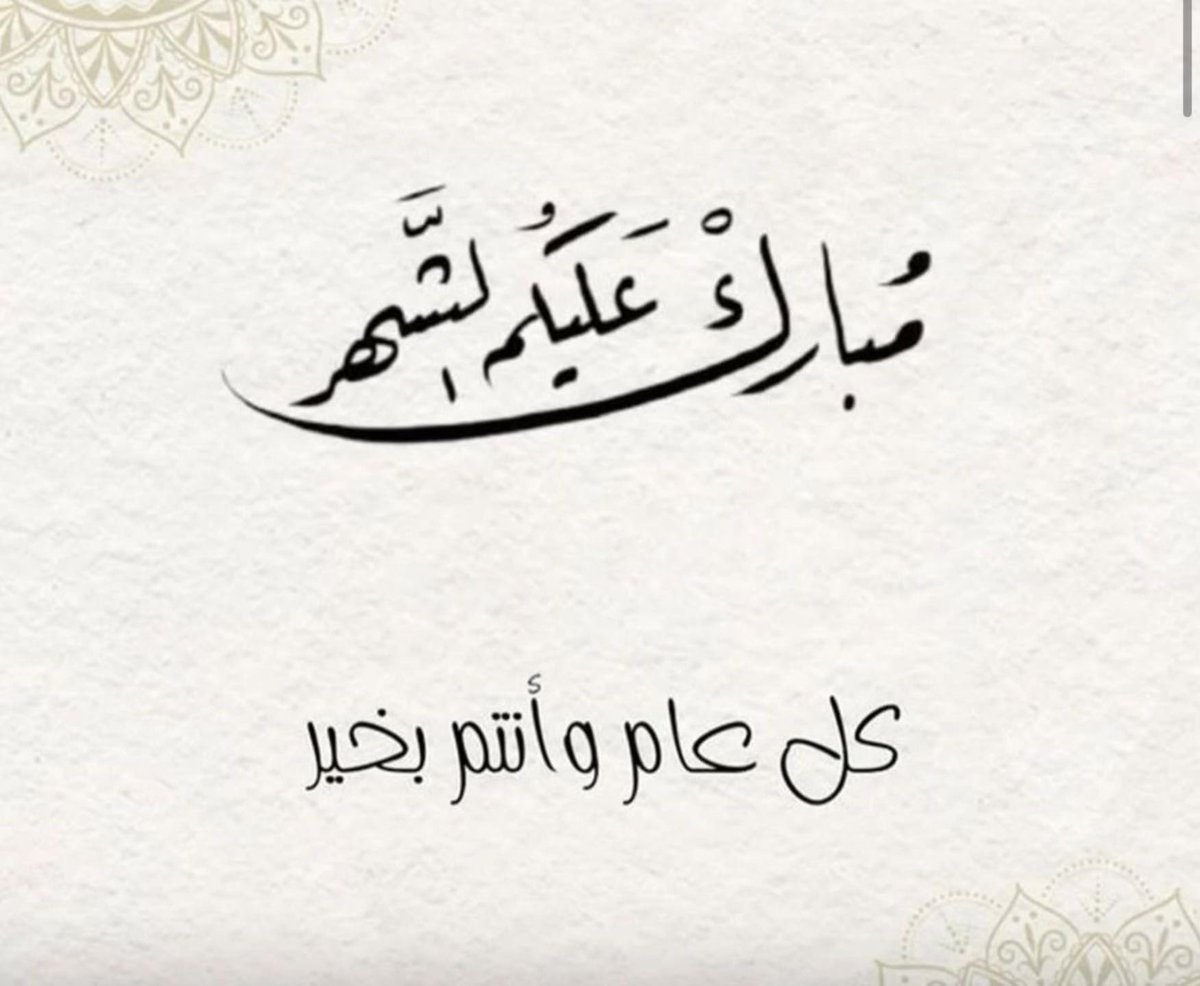 مُباركْ عَليكُم الشَّهر
كل عام وأنتم بخير